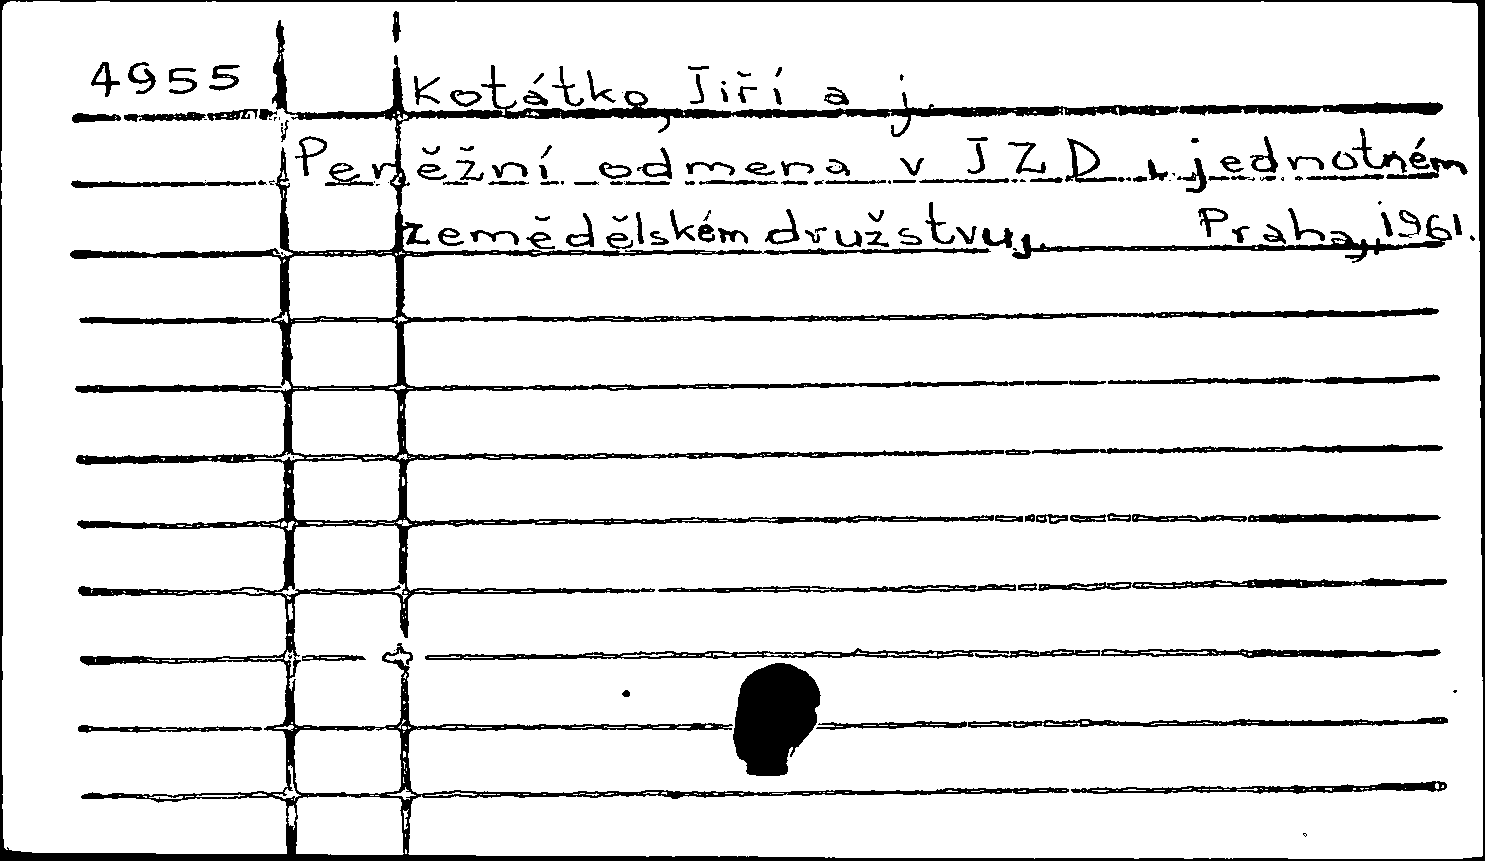 4955 Kotátko, Jiří a j.
Peněžní odmena v JZD, jednotném
zemědělském družstvu. Praha, 1961.